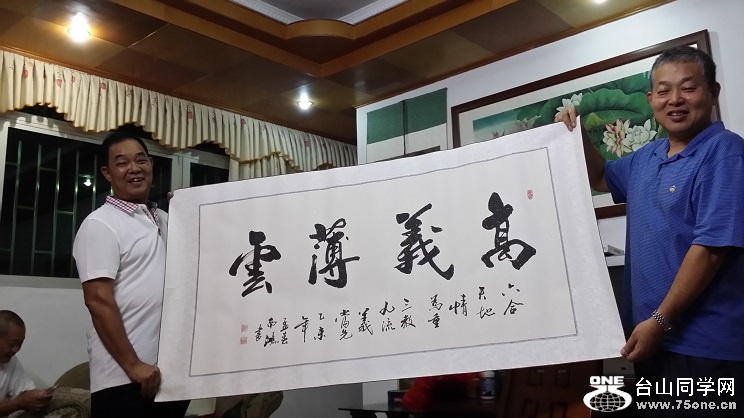 高義薄雲
六合
天地
情
為重
三教
九流
義
當先
乙未
年
書
ONE
台山同学网
www.75one.cn